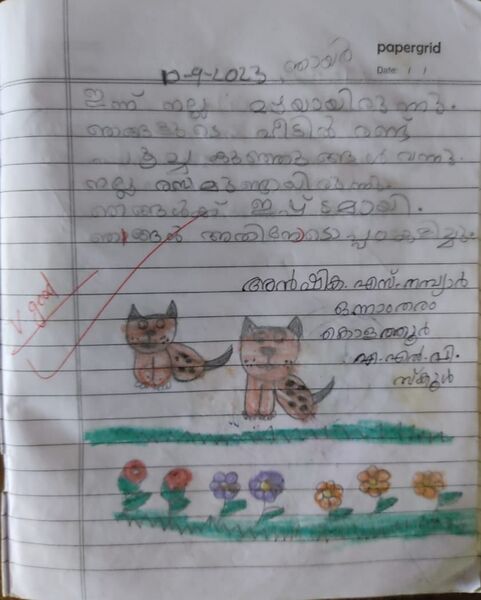 papergrid
Date: / /
10-9-2023 ഞായർ
ഇന്ന് നല്ല മഴയായിരുന്നു.
ഞങ്ങളുടെ വീട്ടിൽ രണ്ട്
പൂച്ച കുഞ്ഞുങ്ങൾ വന്നു.
നല്ല രസമുണ്ടായിരുന്നു.
ഞങ്ങൾക്ക് ഇഷ്ടമായി.
ഞങ്ങൾ അതിനോടൊപ്പം കളിച്ചു.
V. good
അൻഷിക. എസ്. നമ്പ്യാർ
ഒന്നാംതരം
കൊളത്തൂർ
എ.എൽ.പി.
സ്കൂൾ